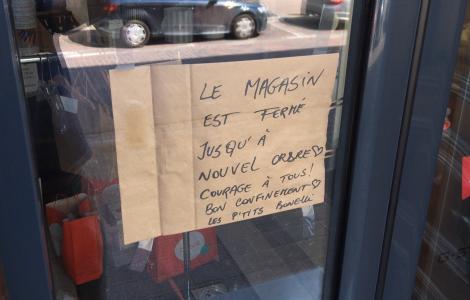 LE MAGASIN
EST FERMÉ
JUSQU'À
NOUVEL ORDRE♡
COURAGE À TOUS!
BON CONFINEMENT♡
LES P'TITS BONELLI